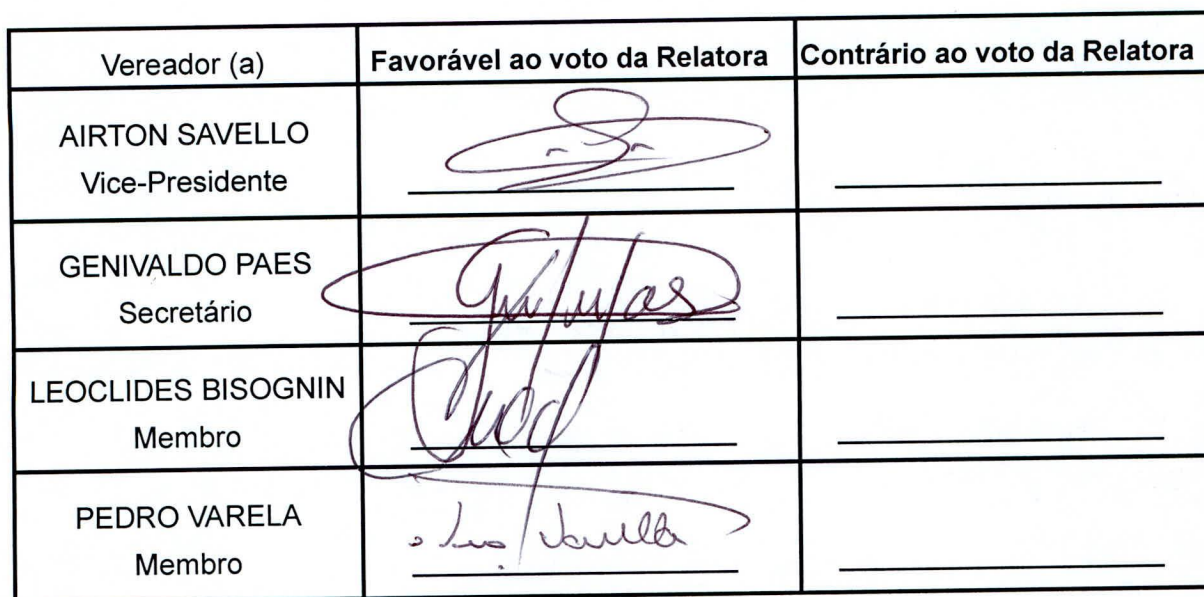 Vereador (a) Favorável ao voto da Relatora Contrário ao voto da Relatora
AIRTON SAVELLO
Vice-Presidente
GENIVALDO PAES
Secretário
LEOCLIDES BISOGNIN
Membro
PEDRO VARELA
Membro